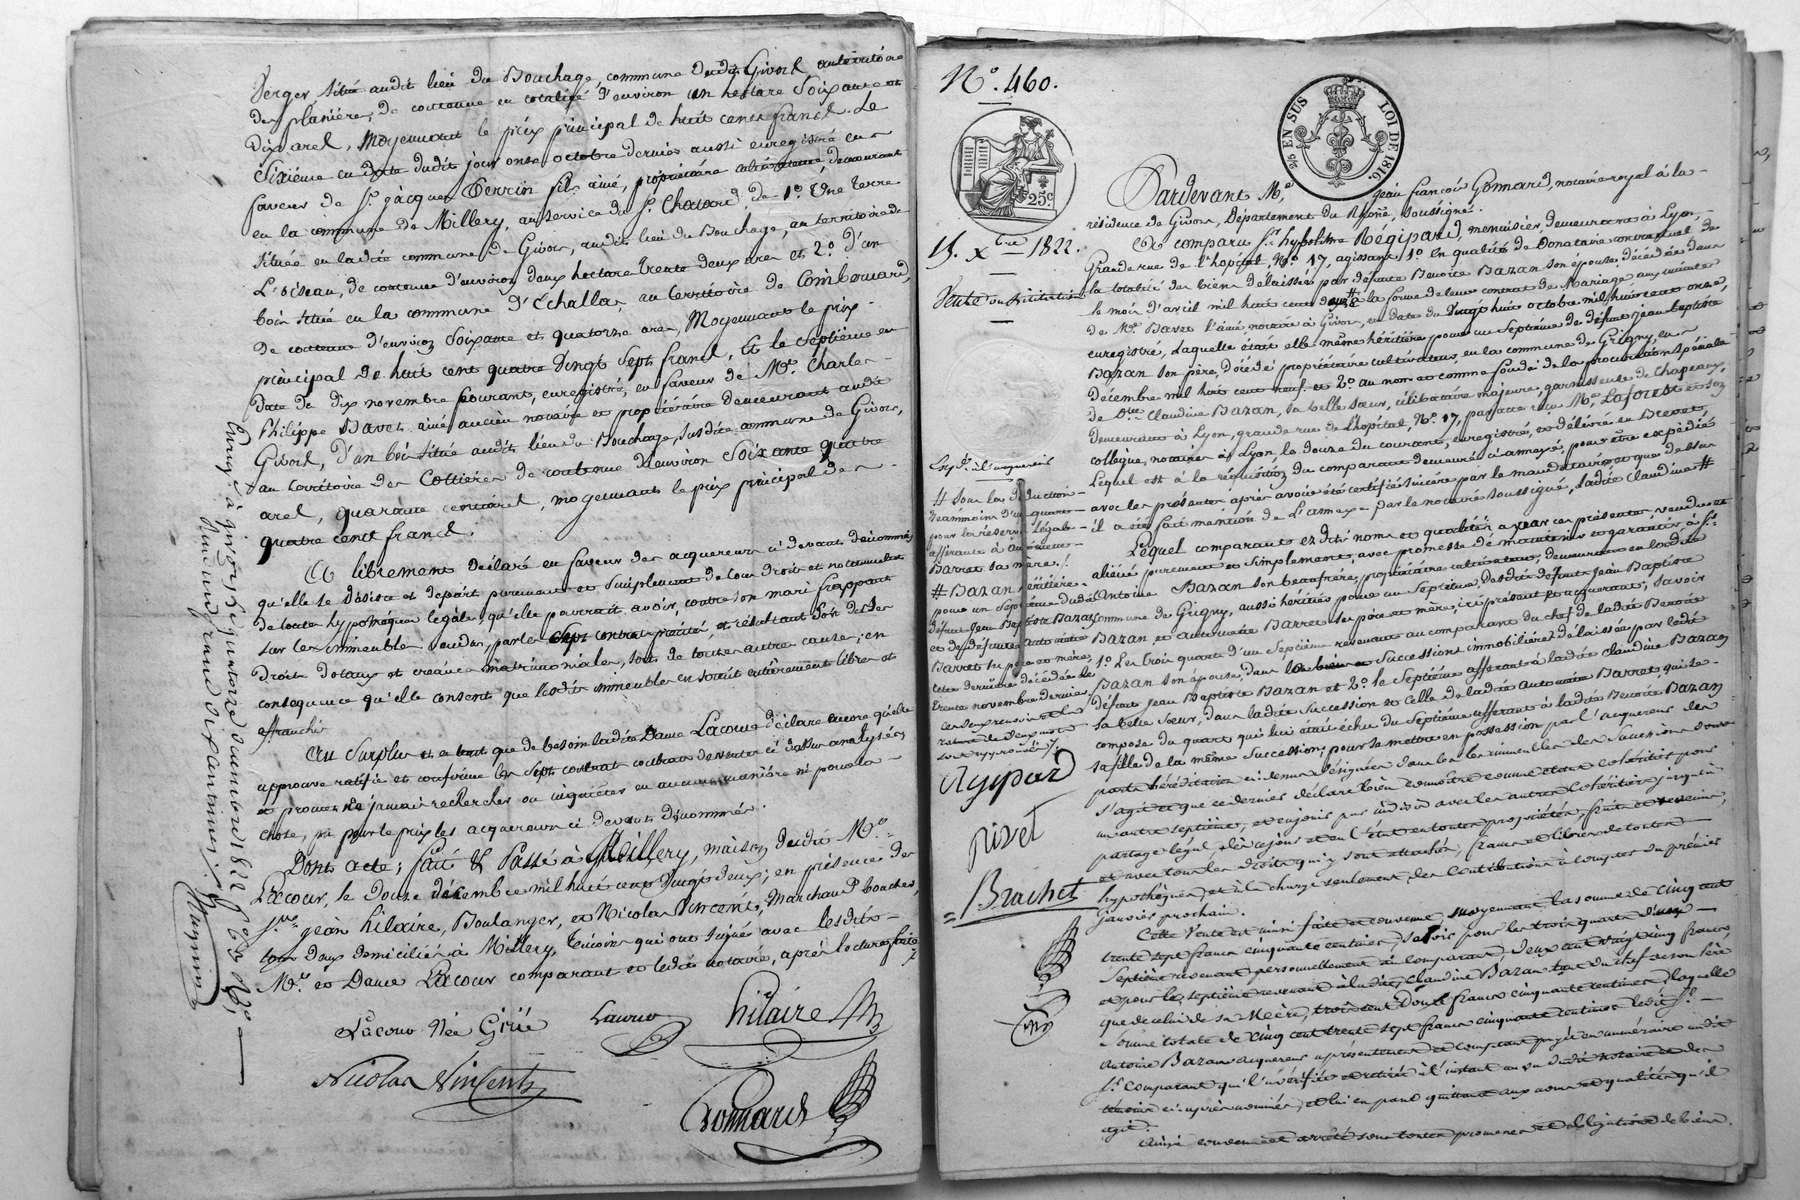 Verger situé audit lieu du Bouchage, commune dudit Givors au territoire
des planières, de contenue en totalité d'environ un hectare Soixante et
dix ares, Moyennant le prix principal de huit cents francs. Le
Sixième en date dudit jour onze octobre dernier aussi enregistré en
faveur de Sr. jacques Terrion fils ainé, propriétaire demeurant
en la commune de Millery, au service du Sr. Chatard, de 1o. Une terre
située en ladite commune de Givors, audit lieu du Bouchage, au territoire de
L'oiseau, de contenue d'environ deux hectares trente deux ares et 2o. d'un
bois situé en la commune d'Echallas, au territoire de Combouard,
de contenue d'environ Soixante et quatorze ares, Moyennant le prix
principal de huit cent quatre Vingt Sept francs, Et le Septième en
Date du dix novembre courant, enregistré, en faveur de Mr. Charles
Philippe Bavet ainé ancien notaire et propriétaire demeurant audit
Givors, D'un bois situé audit lieu du Bouchage, susdite commune de Givors,
au territoire des Cottières de contenue d'environ Soixante quatre
ares, quarante centiares, moyennant le prix principal de
quatre cents francs.
Et librement déclaré en faveur des acquereurs ci devant dénommés
qu'elle se Désiste et départ purement et Simplement de tous droits et notamment
de toute hypothèque légale, qu'elle pourrait avoir, contre son mari frappant
sur les immeubles vendus, par les Sept contrats précités, et résultant soit de ses
Droits dotaux et créances matrimoniales, soit de toutes autres causes; en
conséquence qu'elle consent que lesdits immeubles en soient entièrement libres et
affranchis
Au Surplus et en tant que de besoin ladite Dame Lacour déclare encore qu'elle
approuve ratifie et confirme les Sept contrats de ventes ci dessus analysés
et promet ne jamais rechercher ou inquiéter en aucune manière ni pour la
chose, ni pour le prix les acquereurs ci devant dénommés.
Dont acte; fait & Passé à Millery, maison dudit Mr.
Lacour, le Douze décembre mil huit cent Vingt deux; en présence des
Srs. jean hilaire, Boulanger, et Nicolas Vincent, Marchand boucher,
tous deux domiciliés à Millery, témoins qui ont signés avec lesdits
Mr. et Dame Lacour comparant et ledit notaire, après lecture faite
Lacour née Girié
Lacour
hilaire
Nicolas Vincent
Gonnard
Enregistré à givors le quatorze décembre 1822
No. 460.
25c
2/5 EN SUS LOI DE 1816.
15. Xbre 1822.
Vente
Pardevant Me. jean françois Gonnard, notaire royal à la
résidence de Givors, Département du Rhône, soussigné.
Est comparu Sr. hypolithe Régipard, menuisier, demeurant à Lyon,
Grande rue de l'hopital, No. 17, agissant 1o. En qualité de Donataire contractuel de
la totalité des biens délaissés par défunte Benoite Bazan son épouse, décédée dans
le mois d'avril mil huit cent # à la forme de leur contrat de Mariage aux minutes
de Me. Bavet l'ainé notaire à Givors, en date du Vingt huit octobre mil huit cent onze,
enregistré, Laquelle était elle même héritière pour un Septième de défunt jean baptiste
Bazan son père, Décédé propriétaire cultivateur, en la commune de Grigny, en
décembre mil huit cent neuf. et 2o. au nom et comme fondé de la procuration Spéciale
de Dlle. Claudine Bazan, sa belle sœur, célibataire majeure, garnisseuse de Chapeaux,
demeurant à Lyon, grande rue de l'hopital, No. 17, passée reçu Me. Laforest et son
collègue, notaires à Lyon, le douze du courant, enregistré, et délivrée en Brevet,
Lequel est à la réquisition du comparant demeuré ci annexé, pour être expédié
avec les présentes après avoir été certifié sincère par le mandataire et que dessus
il a été fait mention de L'annexe par le notaire soussigné, Ladite Claudine #
Lequel comparant ez dits noms et qualités a par ces présentes vendu et
aliéné purement et Simplement, avec promesse de maintenir et garantir, à Sr.
Antoine Bazan son beaufrère, propriétaire cultivateur, demeurant en ladite
commune de Grigny, aussi héritier pour un Septième, desdits défunts jean Baptiste
Bazan et Antoinette Barret ses père et mère, ici présent et acquereur, Savoir
1o. Les trois quarts d'un Septième revenant au comparant du chef de ladite Benoite
Bazan son épouse, dans les Successions immobilières délaissées par ledit
défunt jean Baptiste Bazan et 2o. le Septième afférant à ladite Claudine Bazan
sa belle sœur, dans ladite Succession et celle de ladite Antoinette Barret, qui se
compose du quart qui lui était échu du Septième afférant à ladite Benoite Bazan
sa fille de la même Succession; pour se mettre en possession par l'acquereur des
parts héréditaires ci dessus désignées dans les immeubles des Successions dont
s'agit et que ce dernier déclare bien connaître comme étant cohéritier pour
un autre septième, et en jouir par indivis avec les autres cohéritiers jusqu'au
partage légal, dès ce jour et en l'état en toute propriété, fruits et revenus,
et avec tous les droits qui y sont attachés, francs et libres de toutes
hypothèques, et à la charge seulement des Contributions à compter du premier
janvier prochain.
Cette Vente est ainsi faite et convenue moyennant la somme de cinq cent
trente sept francs cinquante centimes, savoir pour les trois quarts d'un
Septième revenant personnellement au comparant, deux cent vingt cinq francs,
et pour le septième revenant à ladite Claudine Bazan tant du chef de son Père
que de celui de sa Mère, trois cent Douze francs cinquante centimes, laquelle
somme totale de cinq cent trente sept francs cinquante centimes ledit Sr.
Antoine Bazan acquereur a présentement et comptant payée en numéraire audit
Sr. comparant qui l'a vérifiée et retirée à l'instant au vu dudit notaire et des
témoins ci après nommés, et lui en passe quittance aux noms et qualités qu'il
agit.
Ainsi convenu et arrêté sous toutes promesses et obligations de biens
# Sous la déduction
néanmoins d'un quart
pour la réserve légale
afférante à Antoinette
Barret sa mère./.
# Bazan héritière
pour un Septième dudit
défunt Jean Baptiste Bazan
et de défunte Antoinette
Barret ses père et mère,
cette dernière décédée le
trente novembre dernier.
Régipard
Rivet
Brachet